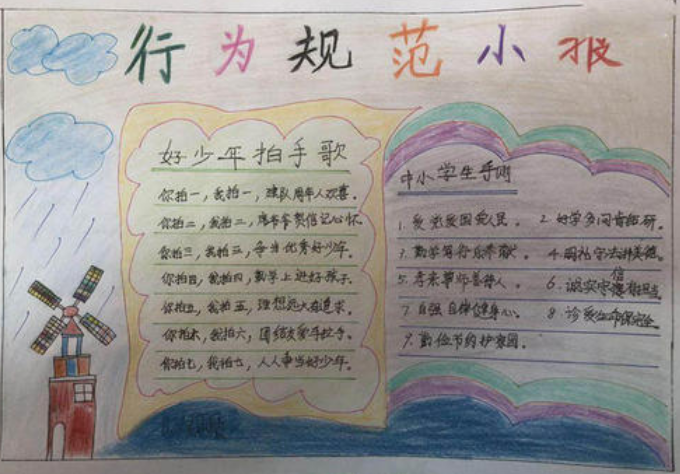 行为规范小报
好少年拍手歌
你拍一,我拍一,建队周年人欢喜。
你拍二,我拍二,席爷爷贺信记心怀。
你拍三,我拍三,争当优秀好少年。
你拍四,我拍四,勤学上进好孩子。
你拍五,我拍五,理想远大有追求。
你拍六,我拍六,团结友爱手拉手。
你拍七,我拍七,人人争当好少年。
中小学生手则
1. 爱党爱国爱人民。 2. 好学多问肯钻研。
3. 勤学笃行乐奉献。 4. 明礼守法讲美德。
5. 孝亲尊师善待人。 6. 诚实守信有担当。
7. 自强自律健身心。 8. 珍爱生命保安全。
9. 勤俭节约护家园。